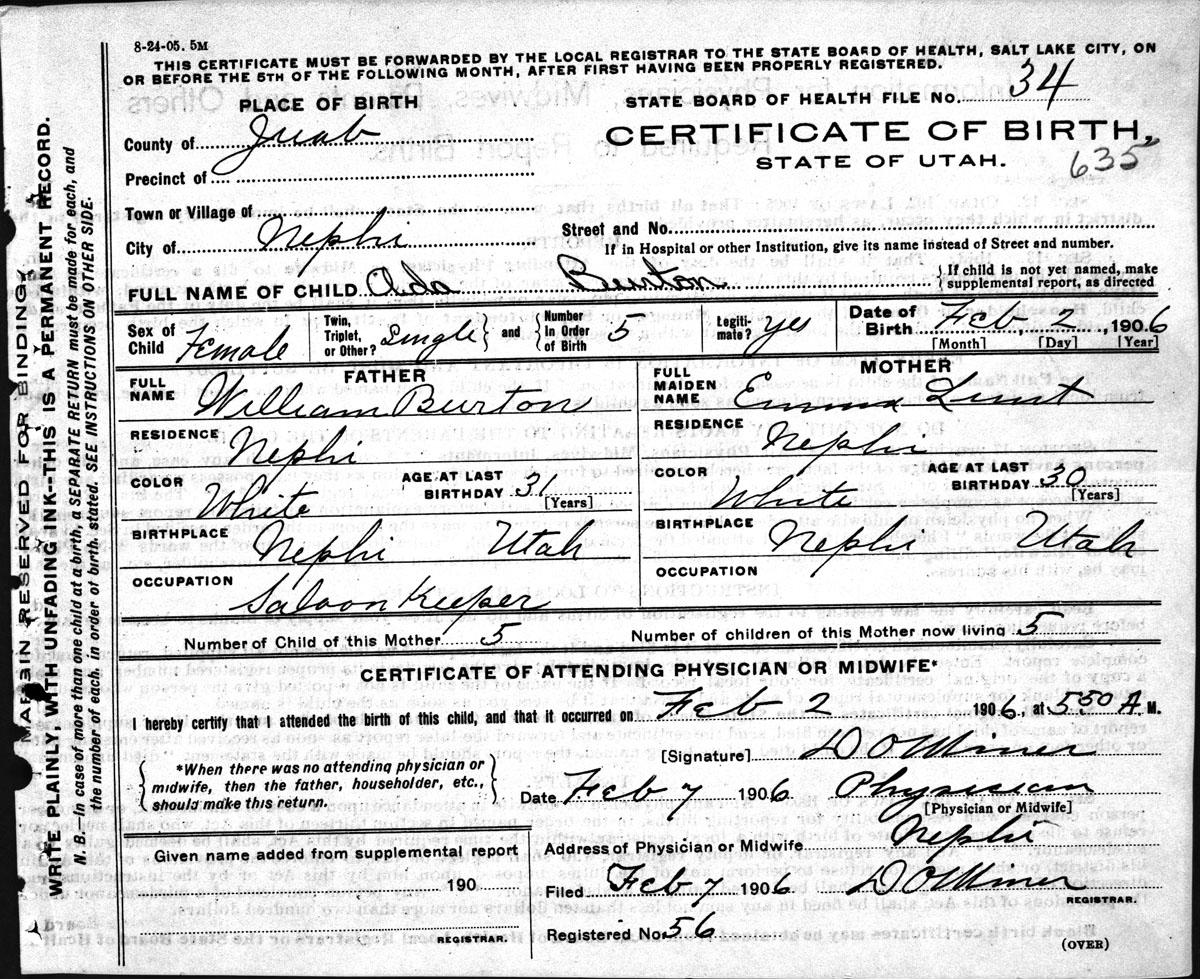 8-24-05. 5M
THIS CERTIFICATE MUST BE FORWARDED BY THE LOCAL REGISTRAR TO THE STATE BOARD OF HEALTH, SALT LAKE CITY, ON
OR BEFORE THE 5TH OF THE FOLLOWING MONTH, AFTER FIRST HAVING BEEN PROPERLY REGISTERED.
PLACE OF BIRTH
STATE BOARD OF HEALTH FILE NO. 34
County of Juab
CERTIFICATE OF BIRTH,
STATE OF UTAH. 635
Precinct of
Town or Village of
Street and No.
City of Nephi
If in Hospital or other Institution, give its name instead of Street and number.
FULL NAME OF CHILD Ada Burton { If child is not yet named, make
supplemental report, as directed
Sex of Child Female
Twin, Triplet, or Other? Single } and { Number In Order of Birth 5
Legitimate? yes
Date of Birth Feb, 2, 1906
[Month] [Day] [Year]
FATHER
FULL NAME William Burton
RESIDENCE Nephi
COLOR White
AGE AT LAST BIRTHDAY 31 [Years]
BIRTHPLACE Nephi Utah
OCCUPATION Saloon Keeper
MOTHER
FULL MAIDEN NAME Emma Lunt
RESIDENCE Nephi
COLOR White
AGE AT LAST BIRTHDAY 30 [Years]
BIRTHPLACE Nephi Utah
OCCUPATION
Number of Child of this Mother 5
Number of children of this Mother now living 5
CERTIFICATE OF ATTENDING PHYSICIAN OR MIDWIFE*
I hereby certify that I attended the birth of this child, and that it occurred on Feb 2 1906, at 5 50 A M.
[Signature] D O Miner
{ *When there was no attending physician or
midwife, then the father, householder, etc.,
should make this return. }
Date Feb 7 1906 Physician
[Physician or Midwife]
Address of Physician or Midwife Nephi
Given name added from supplemental report
190
REGISTRAR.
Filed Feb 7 1906 D O Miner
REGISTRAR.
Registered No. 56
(OVER)
MARGIN RESERVED FOR BINDING.
WRITE PLAINLY, WITH UNFADING INK--THIS IS A PERMANENT RECORD.
N. B.—In case of more than one child at a birth, a SEPARATE RETURN must be made for each, and
the number of each, in order of birth, stated. SEE INSTRUCTIONS ON OTHER SIDE.